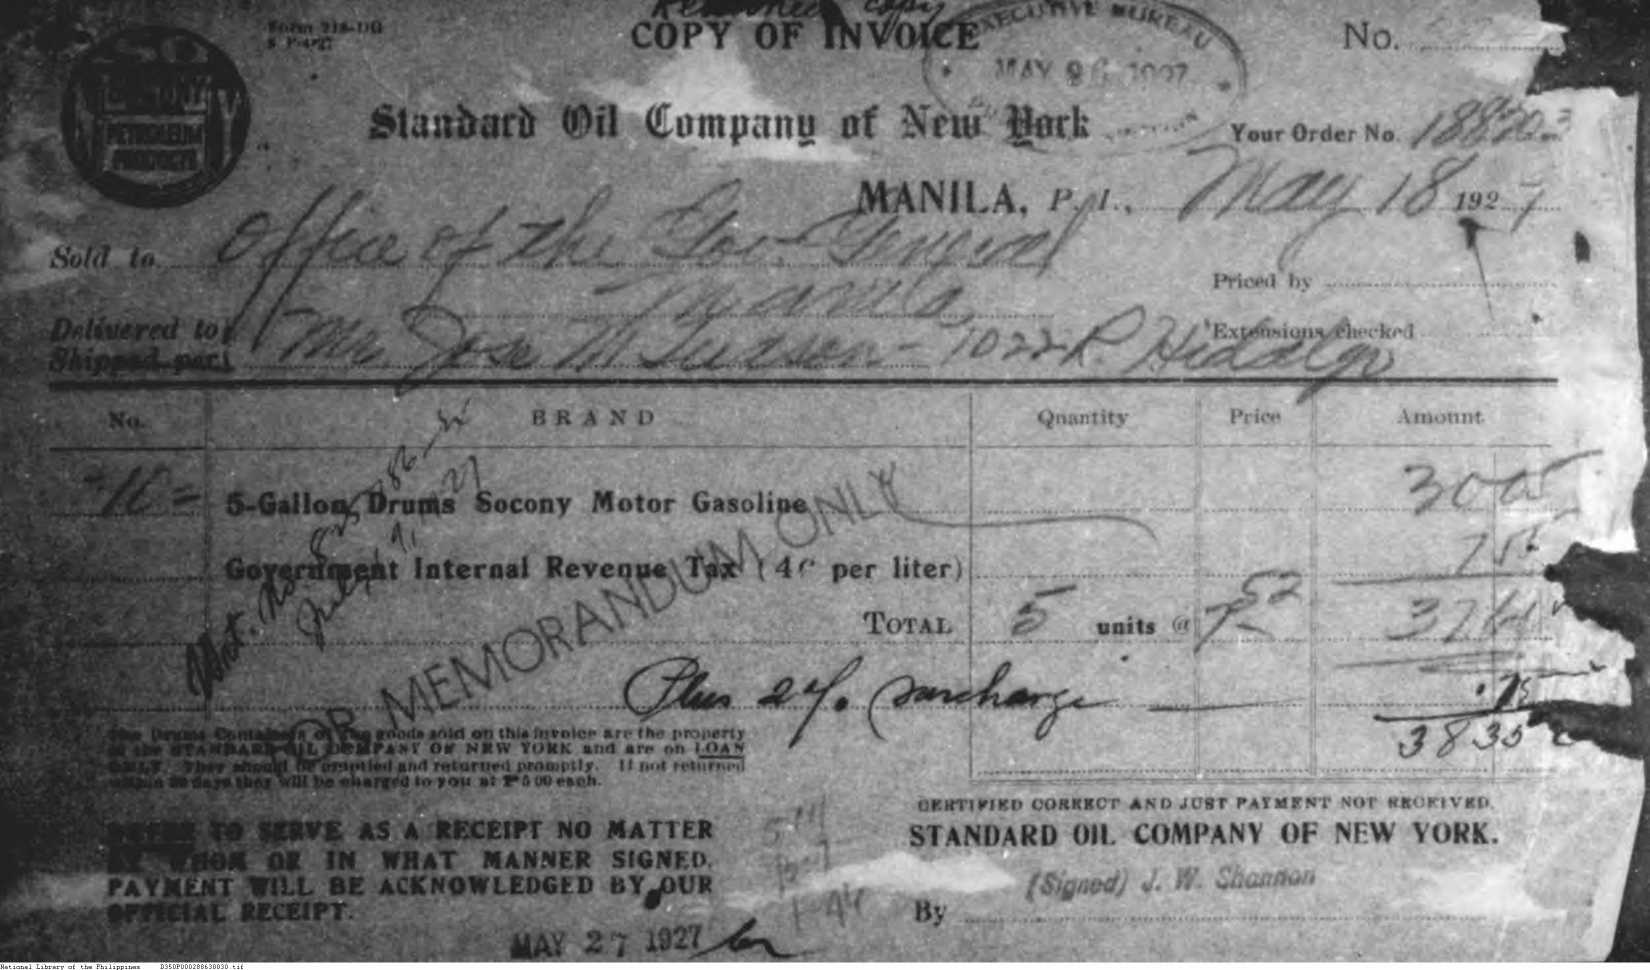 Form 218-DG
COPY OF INVOICE
No.
EXECUTIVE BUREAU
MAY
PETROLEUM
PRODUCTS
Standard Oil Company of New York
Your Order No.
MANILA, P. I., May 18 1927
Sold to Office of the Gov. General
Manila,
Priced by
Delivered to
Shipped per
Mr. Jose M Tuason - 1022 R. Hidalgo
Extensions checked
No. BRAND Quantity Price Amount
10 = 5-Gallon Drums Socony Motor Gasoline
Government Internal Revenue Tax (4c per liter)
TOTAL 5 units @ 7 52
Plus 2%. surcharge .75
38 35
FOR MEMORANDUM ONLY
The Drums Containers of the goods sold on this invoice are the property
of the STANDARD OIL COMPANY OF NEW YORK and are on LOAN
ONLY. They should be emptied and returned promptly. If not returned
within days they will be charged to you at ₱5 00 each.
CERTIFIED CORRECT AND JUST PAYMENT NOT RECEIVED.
STANDARD OIL COMPANY OF NEW YORK.
TO SERVE AS A RECEIPT NO MATTER
BY WHOM OR IN WHAT MANNER SIGNED.
PAYMENT WILL BE ACKNOWLEDGED BY OUR
OFFICIAL RECEIPT.
(Signed) J. W. Shannon
By
MAY 27 1927
National Library of the Philippines D350P000288638030.tif